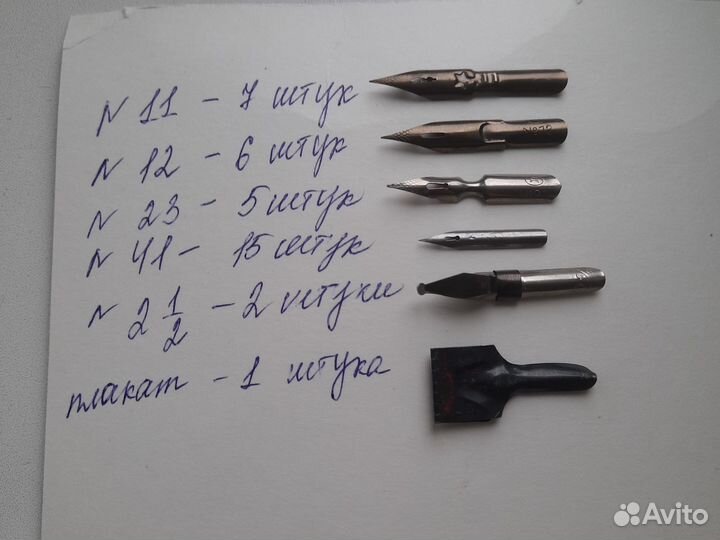 N 11 - 7 штук
N 12 - 6 штук
N 23 - 5 штук
N 41 - 15 штук
N 2 1/2 - 2 штуки
плакат - 1 штука
Avito